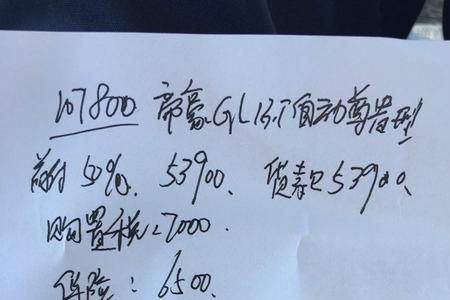 107800 帝豪GL 1.3T自动尊贵型
首付50%、53900、贷款53900、
购置税:7000.
保险:6500.